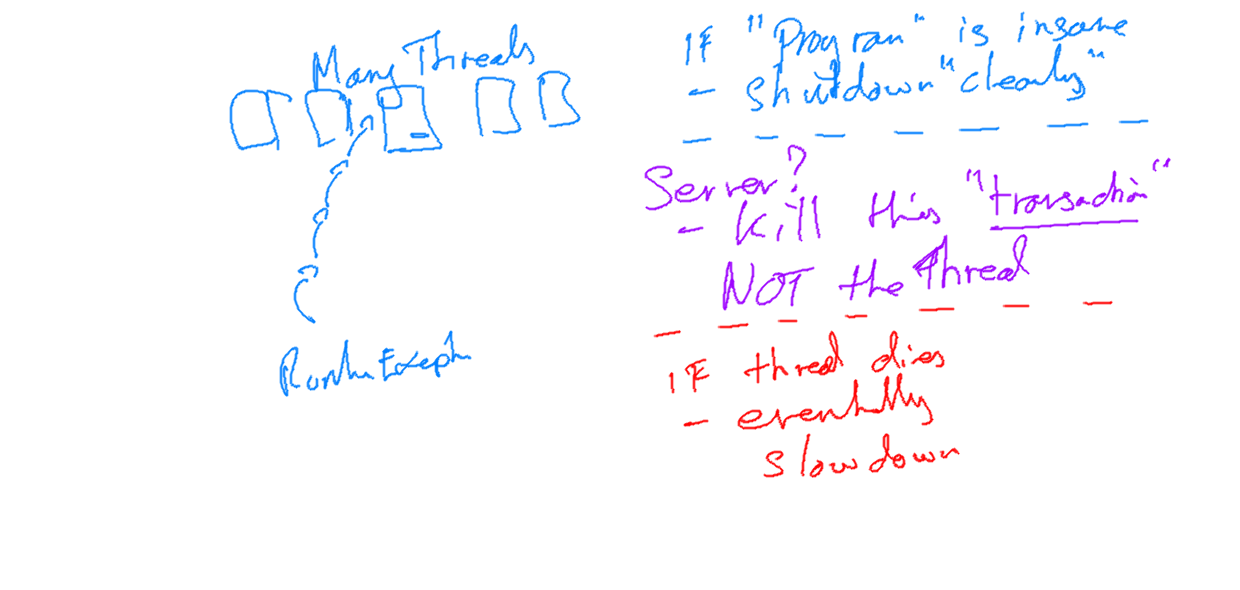 Many Threads
RuntimeExceptn
IF "Program" is insane
- shutdown "cleanly"
Server?
- Kill this "transaction"
NOT the thread
IF thread dies
- eventually
slowdown